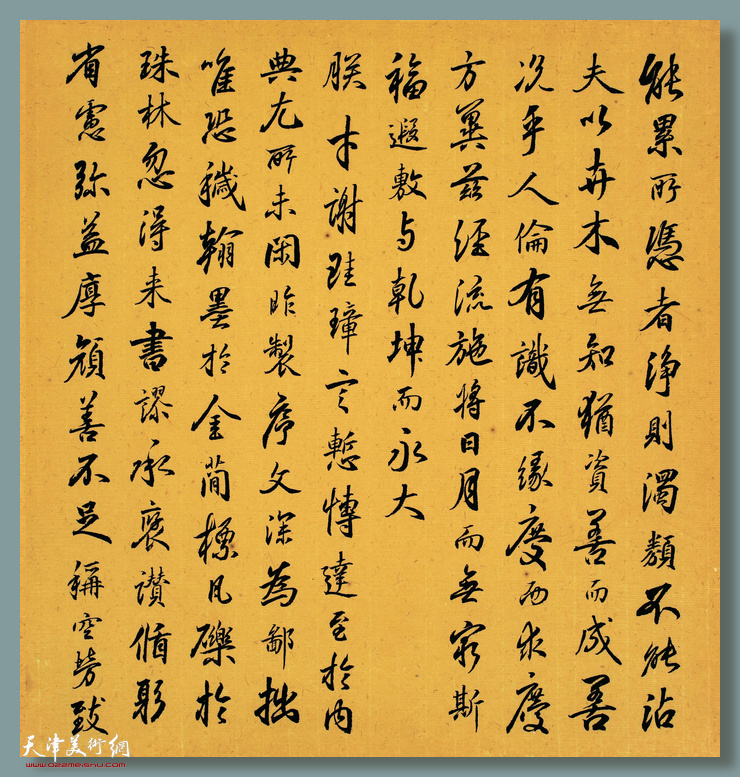 能累所憑者淨則濁類不能沾
夫以卉木無知猶資善而成善
况乎人倫有識不緣慶而求慶
方冀茲經流施將日月而無窮斯
福遐敷与乾坤而永大
朕才謝珪璋言慙愽達至於内
典尤所未閑昨製序文深為鄙拙
唯恐穢翰墨於金簡標瓦礫於
珠林忽得来書謬承褒讃循躬
省慮弥益厚顔善不足稱空勞致
天津美術網
www.022meishu.com